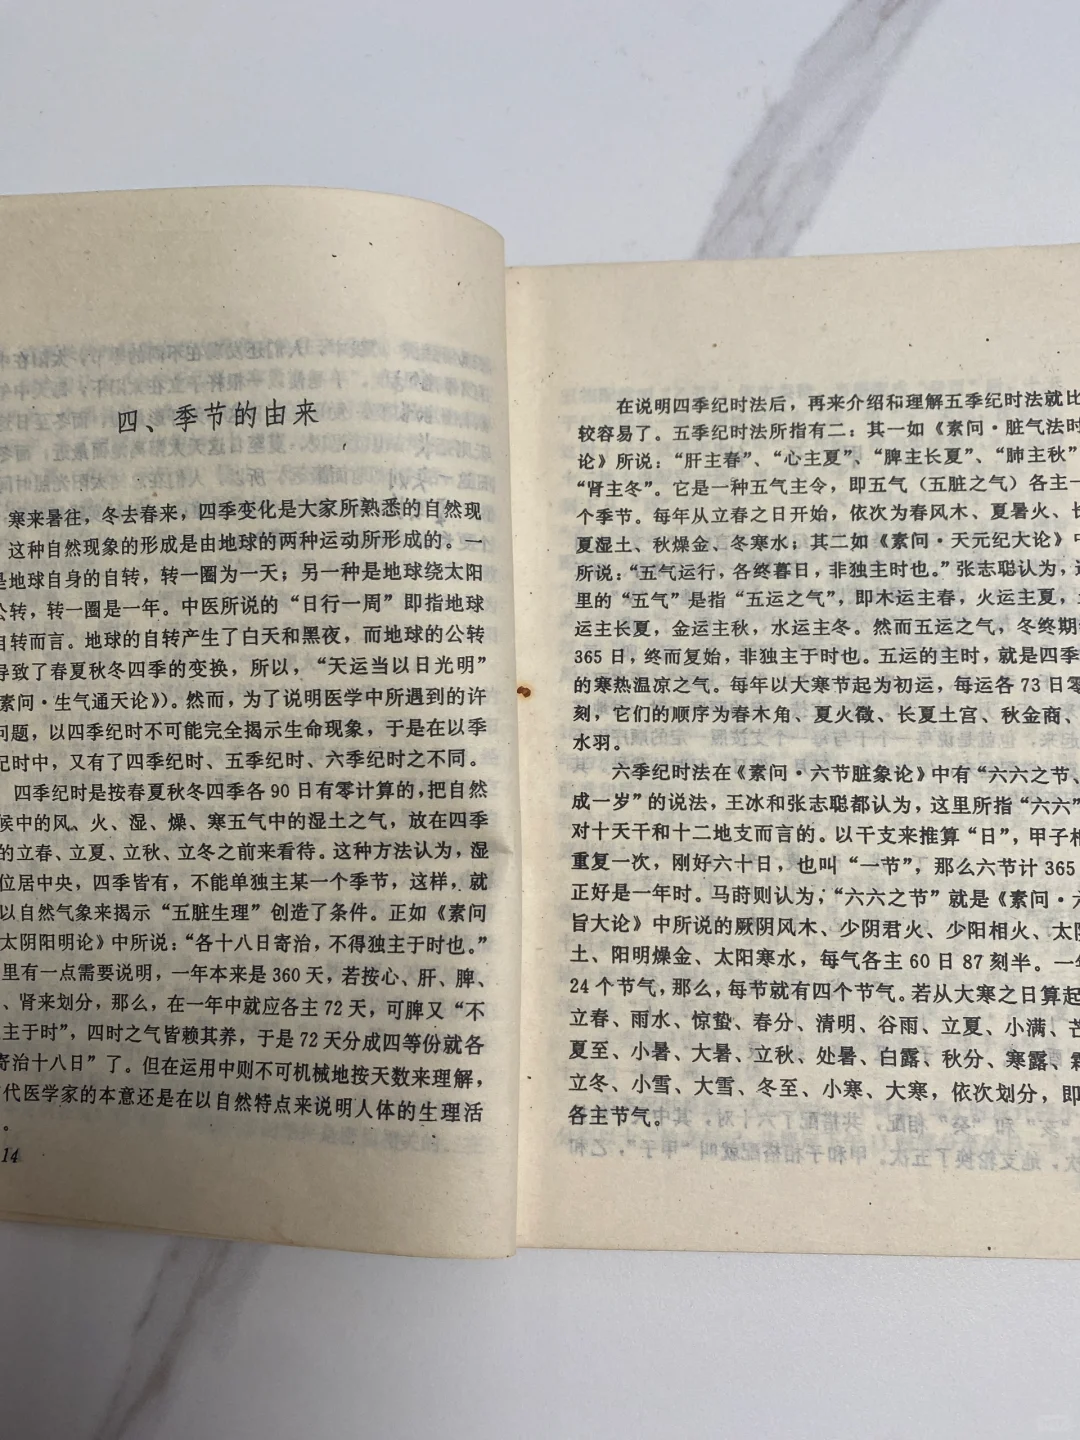 四、季节的由来
寒来暑往，冬去春来，四季变化是大家所熟悉的自然现
这种自然现象的形成是由地球的两种运动所形成的。一
是地球自身的自转，转一圈为一天；另一种是地球绕太阳
公转，转一圈是一年。中医所说的“日行一周”即指地球
自转而言。地球的自转产生了白天和黑夜，而地球的公转
导致了春夏秋冬四季的变换，所以，“天运当以日光明”
素问·生气通天论》）。然而，为了说明医学中所遇到的许
问题，以四季纪时不可能完全揭示生命现象，于是在以季
纪时中，又有了四季纪时、五季纪时、六季纪时之不同。
四季纪时是按春夏秋冬四季各90日有零计算的，把自然
候中的风、火、湿、燥、寒五气中的湿土之气，放在四季
的立春、立夏、立秋、立冬之前来看待。这种方法认为，湿
位居中央，四季皆有，不能单独主某一个季节，这样，就
以自然气象来揭示“五脏生理”创造了条件。正如《素问
太阴阳明论》中所说：“各十八日寄治，不得独主于时也。”
里有一点需要说明，一年本来是360天，若按心、肝、脾、
、肾来划分，那么，在一年中就应各主72天，可脾又“不
主于时”，四时之气皆赖其养，于是72天分成四等份就各
寄治十八日”了。但在运用中则不可机械地按天数来理解，
代医学家的本意还是在以自然特点来说明人体的生理活
。
14
在说明四季纪时法后，再来介绍和理解五季纪时法就比
较容易了。五季纪时法所指有二：其一如《素问·脏气法时
论》所说：“肝主春”、“心主夏”、“脾主长夏”、“肺主秋”
“肾主冬”。它是一种五气主令，即五气（五脏之气）各主一
个季节。每年从立春之日开始，依次为春风木、夏暑火、长
夏湿土、秋燥金、冬寒水；其二如《素问·天元纪大论》中
所说：“五气运行，各终朞日，非独主时也。”张志聪认为，这
里的“五气”是指“五运之气”，即木运主春，火运主夏，土
运主长夏，金运主秋，水运主冬。然而五运之气，冬终期
365日，终而复始，非独主于时也。五运的主时，就是四季
的寒热温凉之气。每年以大寒节起为初运，每运各73日零
刻，它们的顺序为春木角、夏火徵、长夏土宫、秋金商、
水羽。
六季纪时法在《素问·六节脏象论》中有“六六之节、
成一岁”的说法，王冰和张志聪都认为，这里所指“六六”
对十天干和十二地支而言的。以干支来推算“日”，甲子相
重复一次，刚好六十日，也叫“一节”，那么六节计365
正好是一年时。马莳则认为，“六六之节”就是《素问·六
旨大论》中所说的厥阴风木、少阴君火、少阳相火、太阴
土、阳明燥金、太阳寒水，每气各主60日87刻半。一年
24个节气，那么，每节就有四个节气。若从大寒之日算起
立春、雨水、惊蛰、春分、清明、谷雨、立夏、小满、芒
夏至、小暑、大暑、立秋、处暑、白露、秋分、寒露、霜
立冬、小雪、大雪、冬至、小寒、大寒，依次划分，即
各主节气。